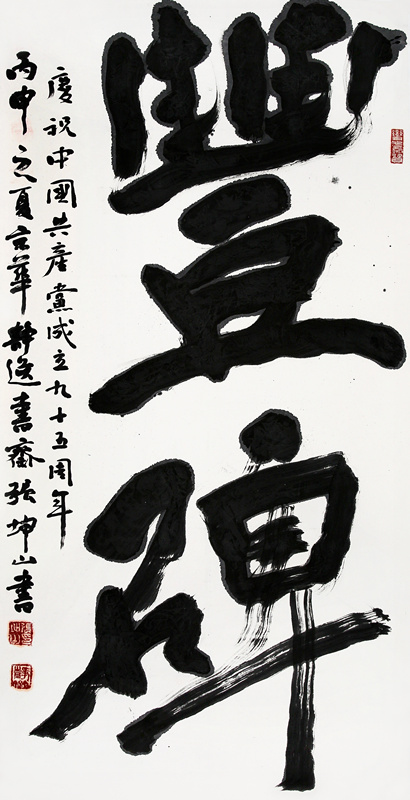 豐碑
慶祝中國共產黨成立九十五周年
丙申之夏京華靜逸書齋張坤山書